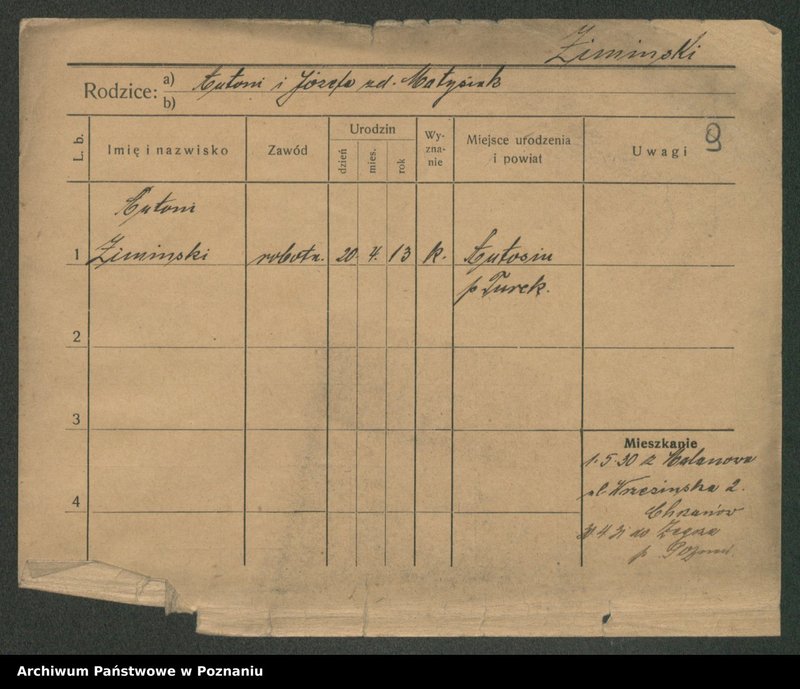 Ziminski
Rodzice: a) Antoni i Józefa zd. Matysiak
b)
L. b.
Imię i nazwisko
Zawód
Urodzin
dzień
mies.
rok
Wy-
zna-
nie
Miejsce urodzenia
i powiat
Uwagi
Antoni
1 Ziminski robotn. 20. 4. 13 k. Antosin
p Turek.
2
3
Mieszkanie
1.5.30 z Malanowa
pl. Wrzesinska 2.
4
do
p. Pozn.
Archiwum Państwowe w Poznaniu